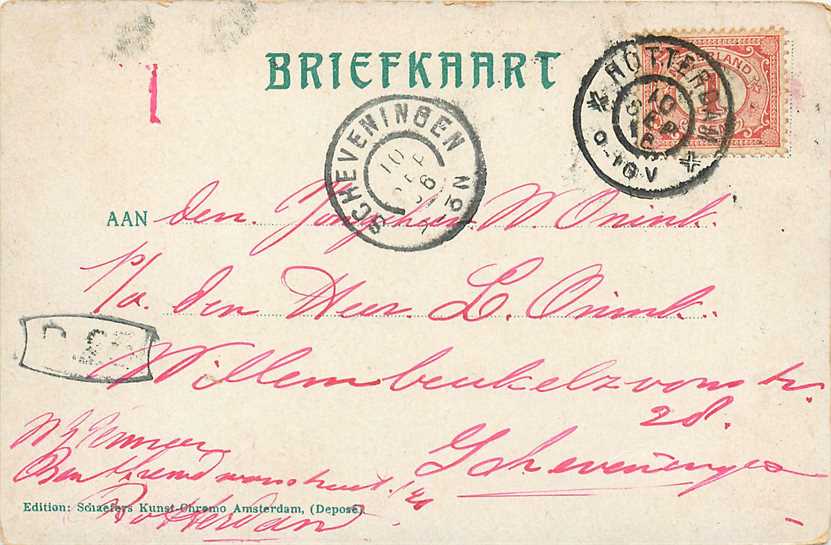 BRIEFKAART
NEDERLAND
1
ROTTERDAM
10
SEP
9-10V
SCHEVENINGEN
10
SEP
No
AAN den W. Onink.
p/a. den Heer. L. Onink.
Willem beukelzoonstr.
28.
Scheveningen
Rotterdam
Edition: Schaefers Kunst-Chromo Amsterdam, (Depose)